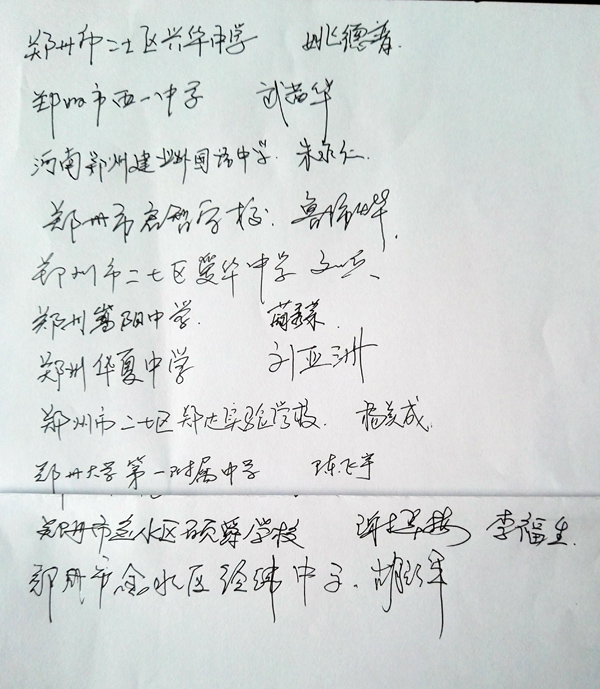 郑州市二七区兴华中学 姚德青
郑州市西一八中学 武
河南郑州建业外国语中学 朱永仁
郑州市启智学校 鲁
郑州市二七区爱华中学
郑州嵩阳中学
郑州华夏中学 刘亚洲
郑州市二七区郑达实验学校 杨关成
郑州大学第一附属中学 陈飞宇
郑州市金水区硕学校 李福生
郑州市金水区经纬中学 胡军